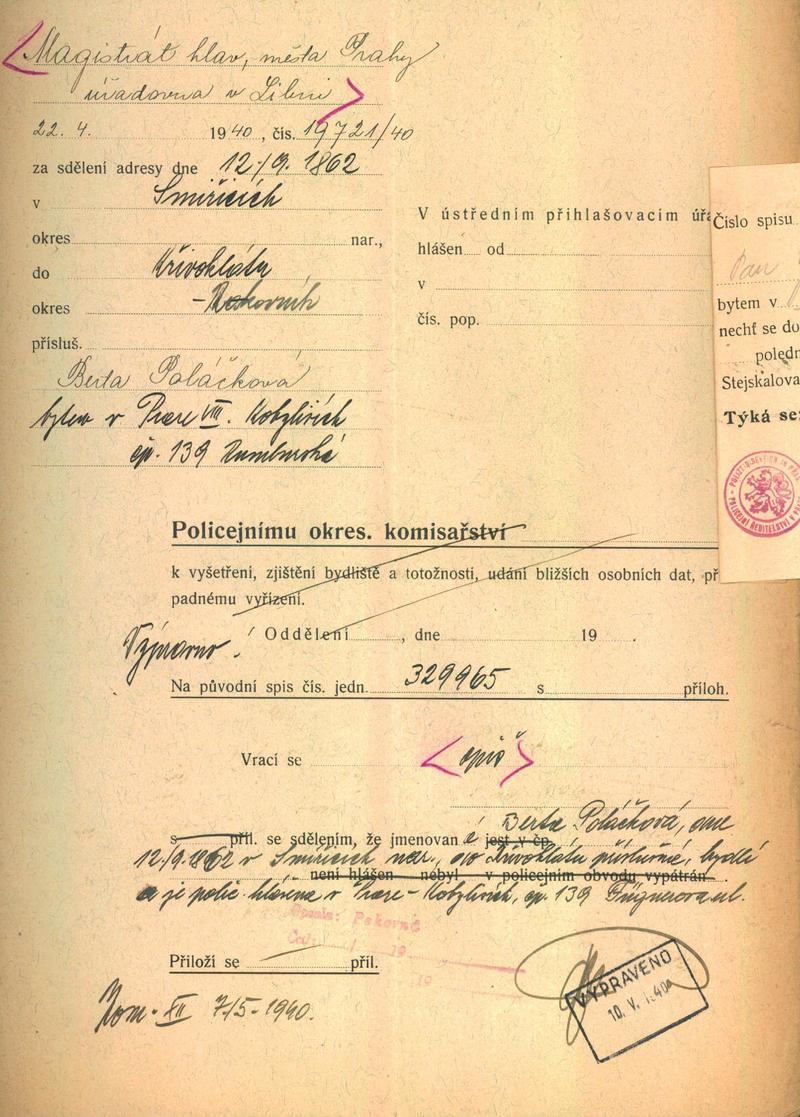 Magistrát hlav. města Prahy
úřadovna v Libni
22. 4. 1940, čís. 19721/40
za sdělení adresy dne 12./9. 1862
v Smiřicích
okres nar.,
do Křivoklátu
okres - Rakovník
přísluš.
Berta Poláčková
bytem v Praze VIII. Kobylisích
čp. 139 Rumburská
V ústředním přihlašovacím úřa
hlášen od
v
čís. pop.
Číslo spisu
Pan
bytem v
nechť se do
poledn
Stejskalova
Týká se:
Policejnímu okres. komisařství
k vyšetření, zjištění bydliště a totožnosti, udání bližších osobních dat, př
padnému vyřízení.
Výpravno! Oddělení , dne 19 .
Na původní spis čís. jedn. 329965 s příloh.
Vrací se opis
Berta Poláčková, dne
s příl. se sdělením, že jmenovan á jest v čp.
12./9. 1862 v Smiřicích nar., do Křivoklátu příslušná, bydlí
není hlášen nebyl v policejním obvodu vypátrán
a je polic. hlášena v Praze - Kobylisích, čp. 139 Fügnerova ul.
Přiloží se příl.
Kom. XII 7/5 - 1940.
VYPRAVENO
10. V. 1940